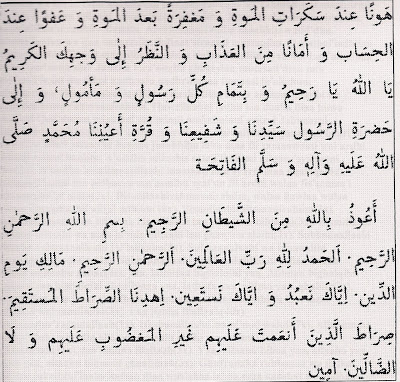 هَونًا عِندَ سَكَرَاتِ المَوةِ وَ مَغفِرَةً بَعدَ المَوةِ وَ عَفوًا عِندَ
الحِسَابِ وَ أَمَانًا مِنَ العَذَابِ وَ النَّظَرُ إِلٰى وَجهِكَ الكَرِيمُ
يَا اللهُ يَا رَحِيمُ وَ بِتَمَامِ كُلَّ رَسُولٍ وَ مَأمُولٍ، وَ إِلٰى
حَضرَةِ الرَّسُولِ سَيِّدَنَا وَ شَفِيعِنَا وَ قُرَّةِ أَعيُنِنَا مُحَمَّدٍ صَلَّى
اللهُ عَلَيهِ وَآلِهِ وَ سَلَّم الفَاتِحَـة
أَعُوذُ بِاللهِ مِنَ الشَّيطَانِ الرَّجِيمِ. بِسمِ اللهِ الرَّحمٰنِ
الرَّحِيمِ. اَلحَمدُ لِلهِ رَبِّ العَالَمِينَ. اَلرَّحمٰنِ الرَّحِيمِ. مَالِكِ يَومِ
الدِّينِ. إِيَّاكَ نَعبُدُ وَ ايَّاكَ نَستَعِين. اِهدِنَا الصِّرَاطَ المُستَقِيمَ.
صِرَاطَ الَّذِينَ أَنعَمتَ عَلَيهِم غَيرِ المَغضُوبِ عَلَيهِم وَ لَا
الضَّالِّينَ. آمِين